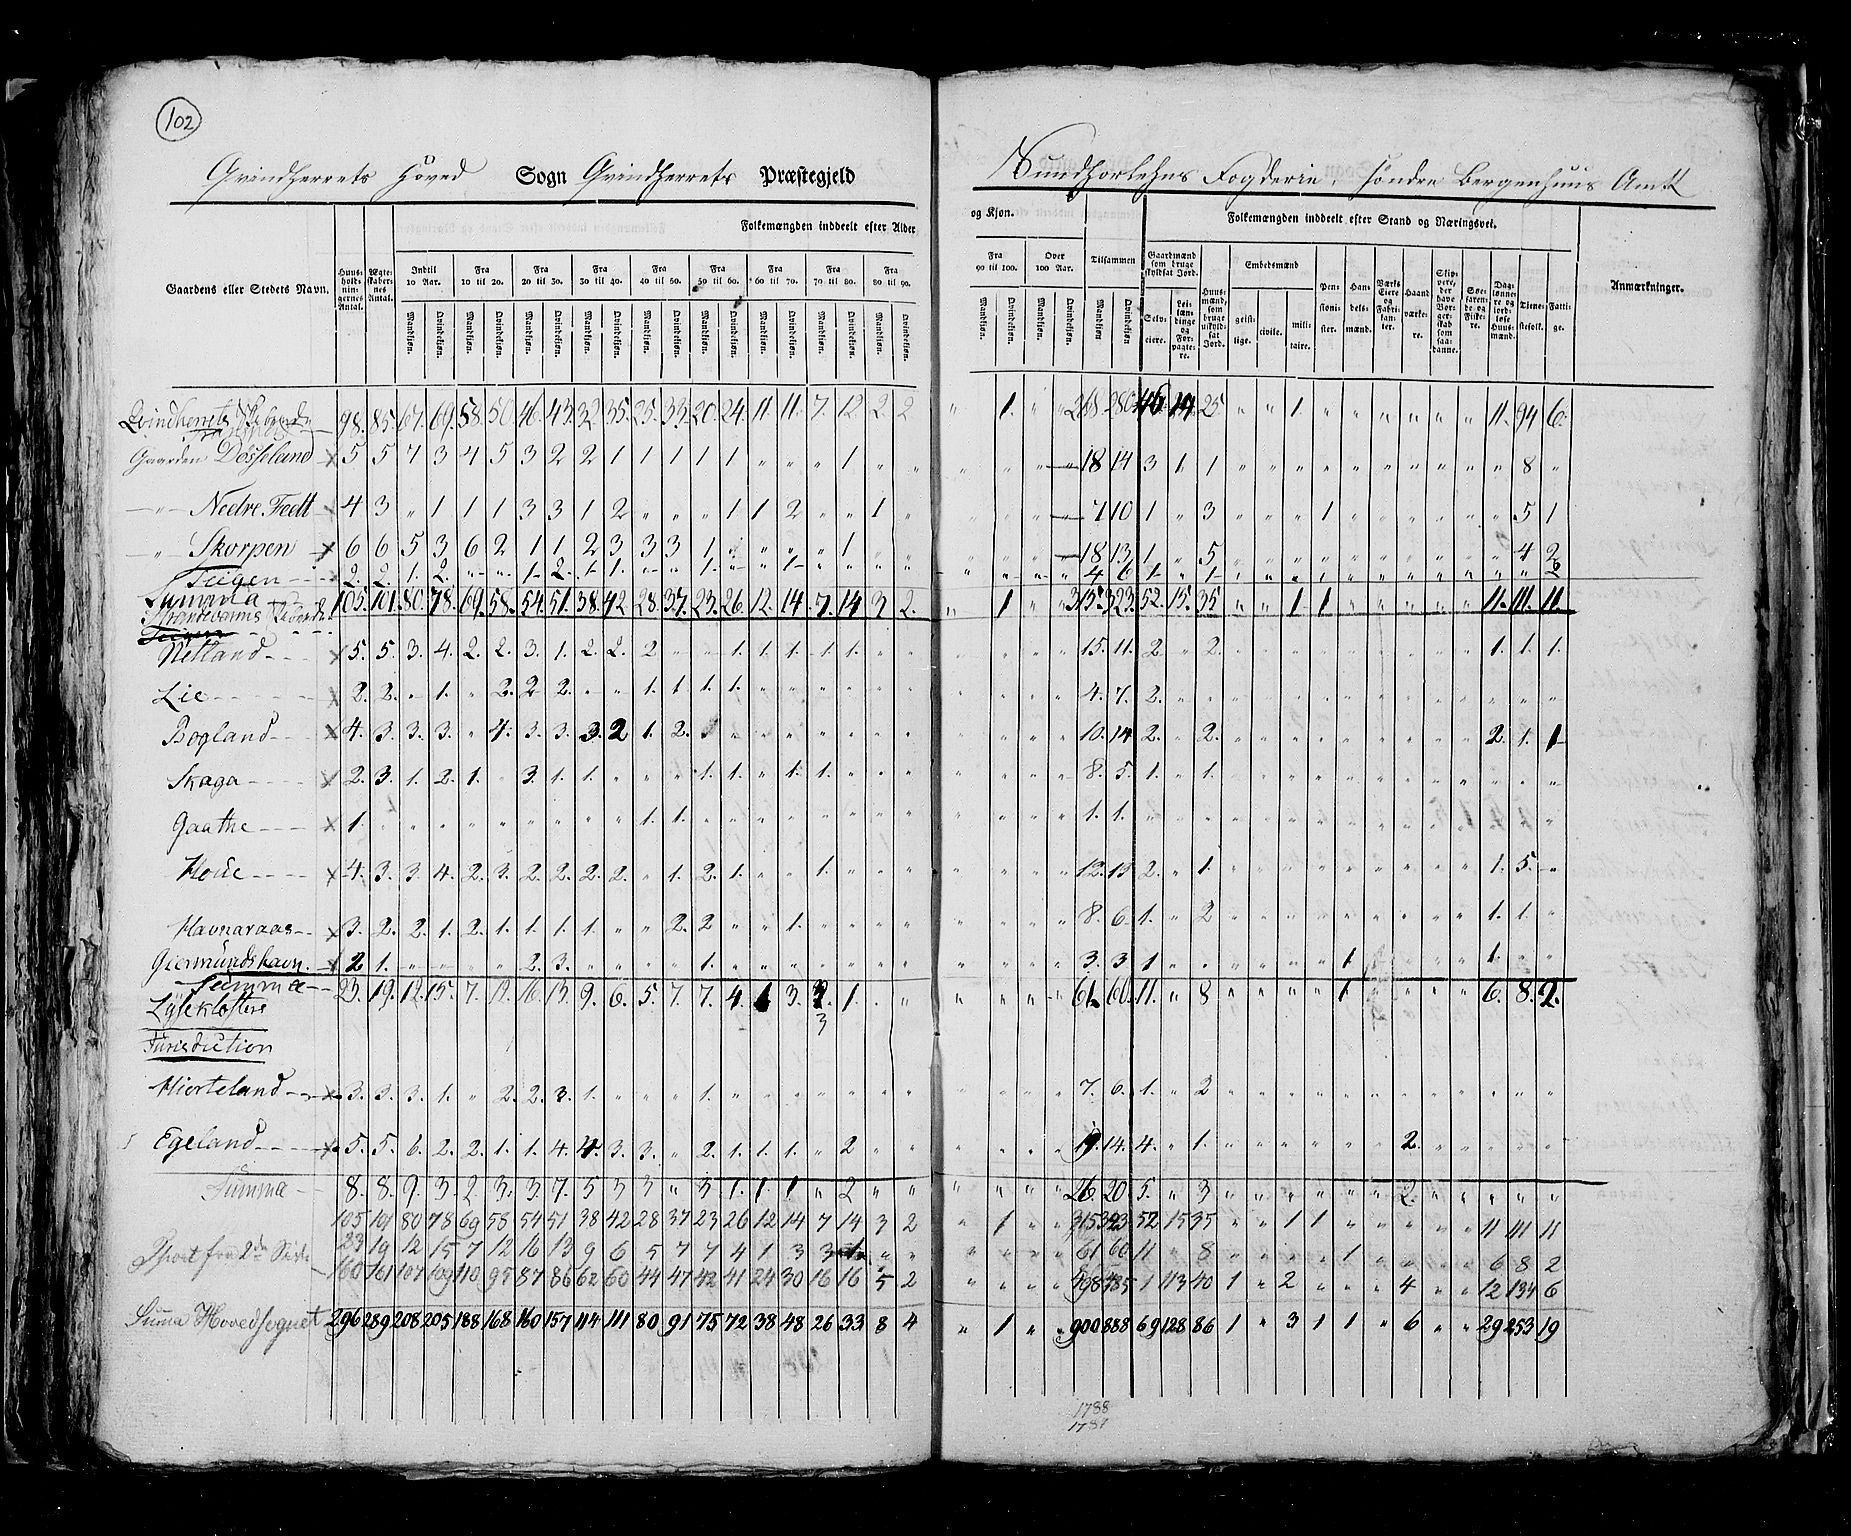 102
Qvindherrets Hoved Sogn Qvindherrets Præstegjeld
Sundhorlehns Fogderie, Søndre Bergenhuus Amt
Gaardens eller Stedets Navn. Huus-holdnin-gernes Antal. Ægte-skaber-nes Antal. Folkemængden inddeelt efter Alder og Kjøn. Tilsammen Folkemængden inddeelt efter Stand og Næringsvei. Anmærkninger.
Indtil 10 Aar. Fra 10 til 20. Fra 20 til 30. Fra 30 til 40. Fra 40 til 50. Fra 50 til 60. Fra 60 til 70. Fra 70 til 80. Fra 80 til 90. Fra 90 til 100. Over 100 Aar.
Mandkjøn. Qvindekjøn. Mandkjøn. Qvindekjøn. Mandkjøn. Qvindekjøn. Mandkjøn. Qvindekjøn. Mandkjøn. Qvindekjøn. Mandkjøn. Qvindekjøn. Mandkjøn. Qvindekjøn. Mandkjøn. Qvindekjøn. Mandkjøn. Qvindekjøn. Mandkjøn. Qvindekjøn. Mandkjøn. Qvindekjøn. Mandkjøn Qvindekjøn.
Gaardmænd som bruge skyldsat Jord. Selv-eiere. Lei-læn-dinge og For-pagte-re. Huus-mænd, som bruge uskyld-sat Jord. Embedsmænd geist-lige. civile. mili-taire. Pen-sioni-ster. Han-dels-mænd. Værks Eiere og Fabri-kan-ter. Haand værke-re. Skip-pere, der have Bor-ger-skab som saa-danne. Søe-faren-de og Fiske-re. Dag-lønne-re og jord-løse Huus-mænd. Tiene-stefolk. Fatti-ge.
Qvindherrets 98. 85. 67. 69. 58. 50. 46. 43. 32. 35. 25. 33. 20. 24. 11. 11. 7. 12. 2. 2 " 1. " " 268 280 46 14 25. " " 1. " " " " " " 11. 94 6.
Gaarden Dosseland 5 5 7 3 4 5 3 2 2 1 1 1 1 1 " " " 1 " " 18 14 3 1 1 8
" Nedre Fæt 4 3 " 1 1 1 3 3 1 2 " " " 1 1 2 " " 1 " 7 10 1 " 3 1 5 1
" Skorpen 6 6 5 3 6 2 1 1 2 3 3 3 1 " " " " 1 " " 18 13 1 " 5 4 2
Teigen 2. 2. 1. 2. " " 1 2. 1 1. " " 1. " " 1 " " 4 6 1 " 1
Summa 105. 101. 80. 78. 69. 58. 54. 51. 38. 42 28. 37. 23. 26. 12. 14. 7. 14 3 2. " 1 " " 315. 323. 52. 15. 35 " " 1 1 " " " " " 11. 111. 11.
Netland 5. 5. 3. 4. 2. 2. 3. 1. 2. 2. 2 " " 1. 1. 1. 1. 1. 15. 11. 2 " 2. 1. 1. 1.
Lie 2. 2. " 1. " 2. 2 2. " " 1. 1. 1. 1. 4. 7. 2.
Bogland 4. 3. 3. 3. " 4. 3. 3. 3. 2 1. 2. 10. 14 2. " 2. 2. 1. 1
Skaga 2. 3. 1. 2. 1. " 3. 1. 1. " " " 1. 1. " 1. 1. 8. 5. 1. " 1.
Gaathe 1. 1. 1. 1. 1.
Hoüe 4. 3. 3. 4. 2. 3. 2. 2. 2. 2. " 1. 2. 1. " " 1. 12. 13 2. " 1. 1. 5.
Havnaraas 3. 2. 2. 1. 2. 1. 1. 1. 1. " " 2. 2 " " 1. 8. 6. 1. " 2 1. 1.
Giermundshavn 2 1. 2. 3. 1. 3. 3 1 1 1.
Summa 23. 19. 12. 15. 7. 12. 16. 13. 9. 6. 5. 7. 7. 4. 1 3. 3 1. 61. 60. 11. " 8 1 6. 8. 2.
Lysekloster
Jurisdiction
Hierteland 3. 3. 3. 1. " 2. 2. 3. 1. " " " 1. 7. 6. 1. " 2
Egeland 5. 5. 6. 2. 2. 1. 1. 4. 4. 3. 3. " 2. 1. 1. 1. " 2 19. 14. 4. " 1. 2.
Summa 8. 8. 9. 3. 2. 3. 3. 7. 5 3 3 " 3 1. 1. 1 " 2 " " 26. 20 5. " 3 2.
105 101 80 78 69 58 54 51 38 42 28 37 23 26 12 14 7 14 3 2 " 1 " " 315 323 52 15 35 " " 1 1 11 111 11
23 19 12 15 7 12 16 13 9 6 5 7 7 4 1 3 3 1 61 60 11 " 8 1 6 8 2
160 161 107 109 110 95 87 86 62 60 44 47 42 41 24 30 16 16 5 2 498 485 1 113 40 1 " 2 4 12 134 6
Summa Hovedsognet 296 289 208 205 188 168 160 157 114 111 80 91 75 72 38 48 26 33 8 4 " 1 " " 900 888 69 128 86 1 " 3 1 1 " 6 " " 29 253 19
1788
1787